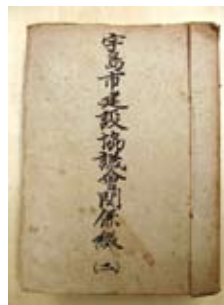 宇島市建設協議會関係綴(二)